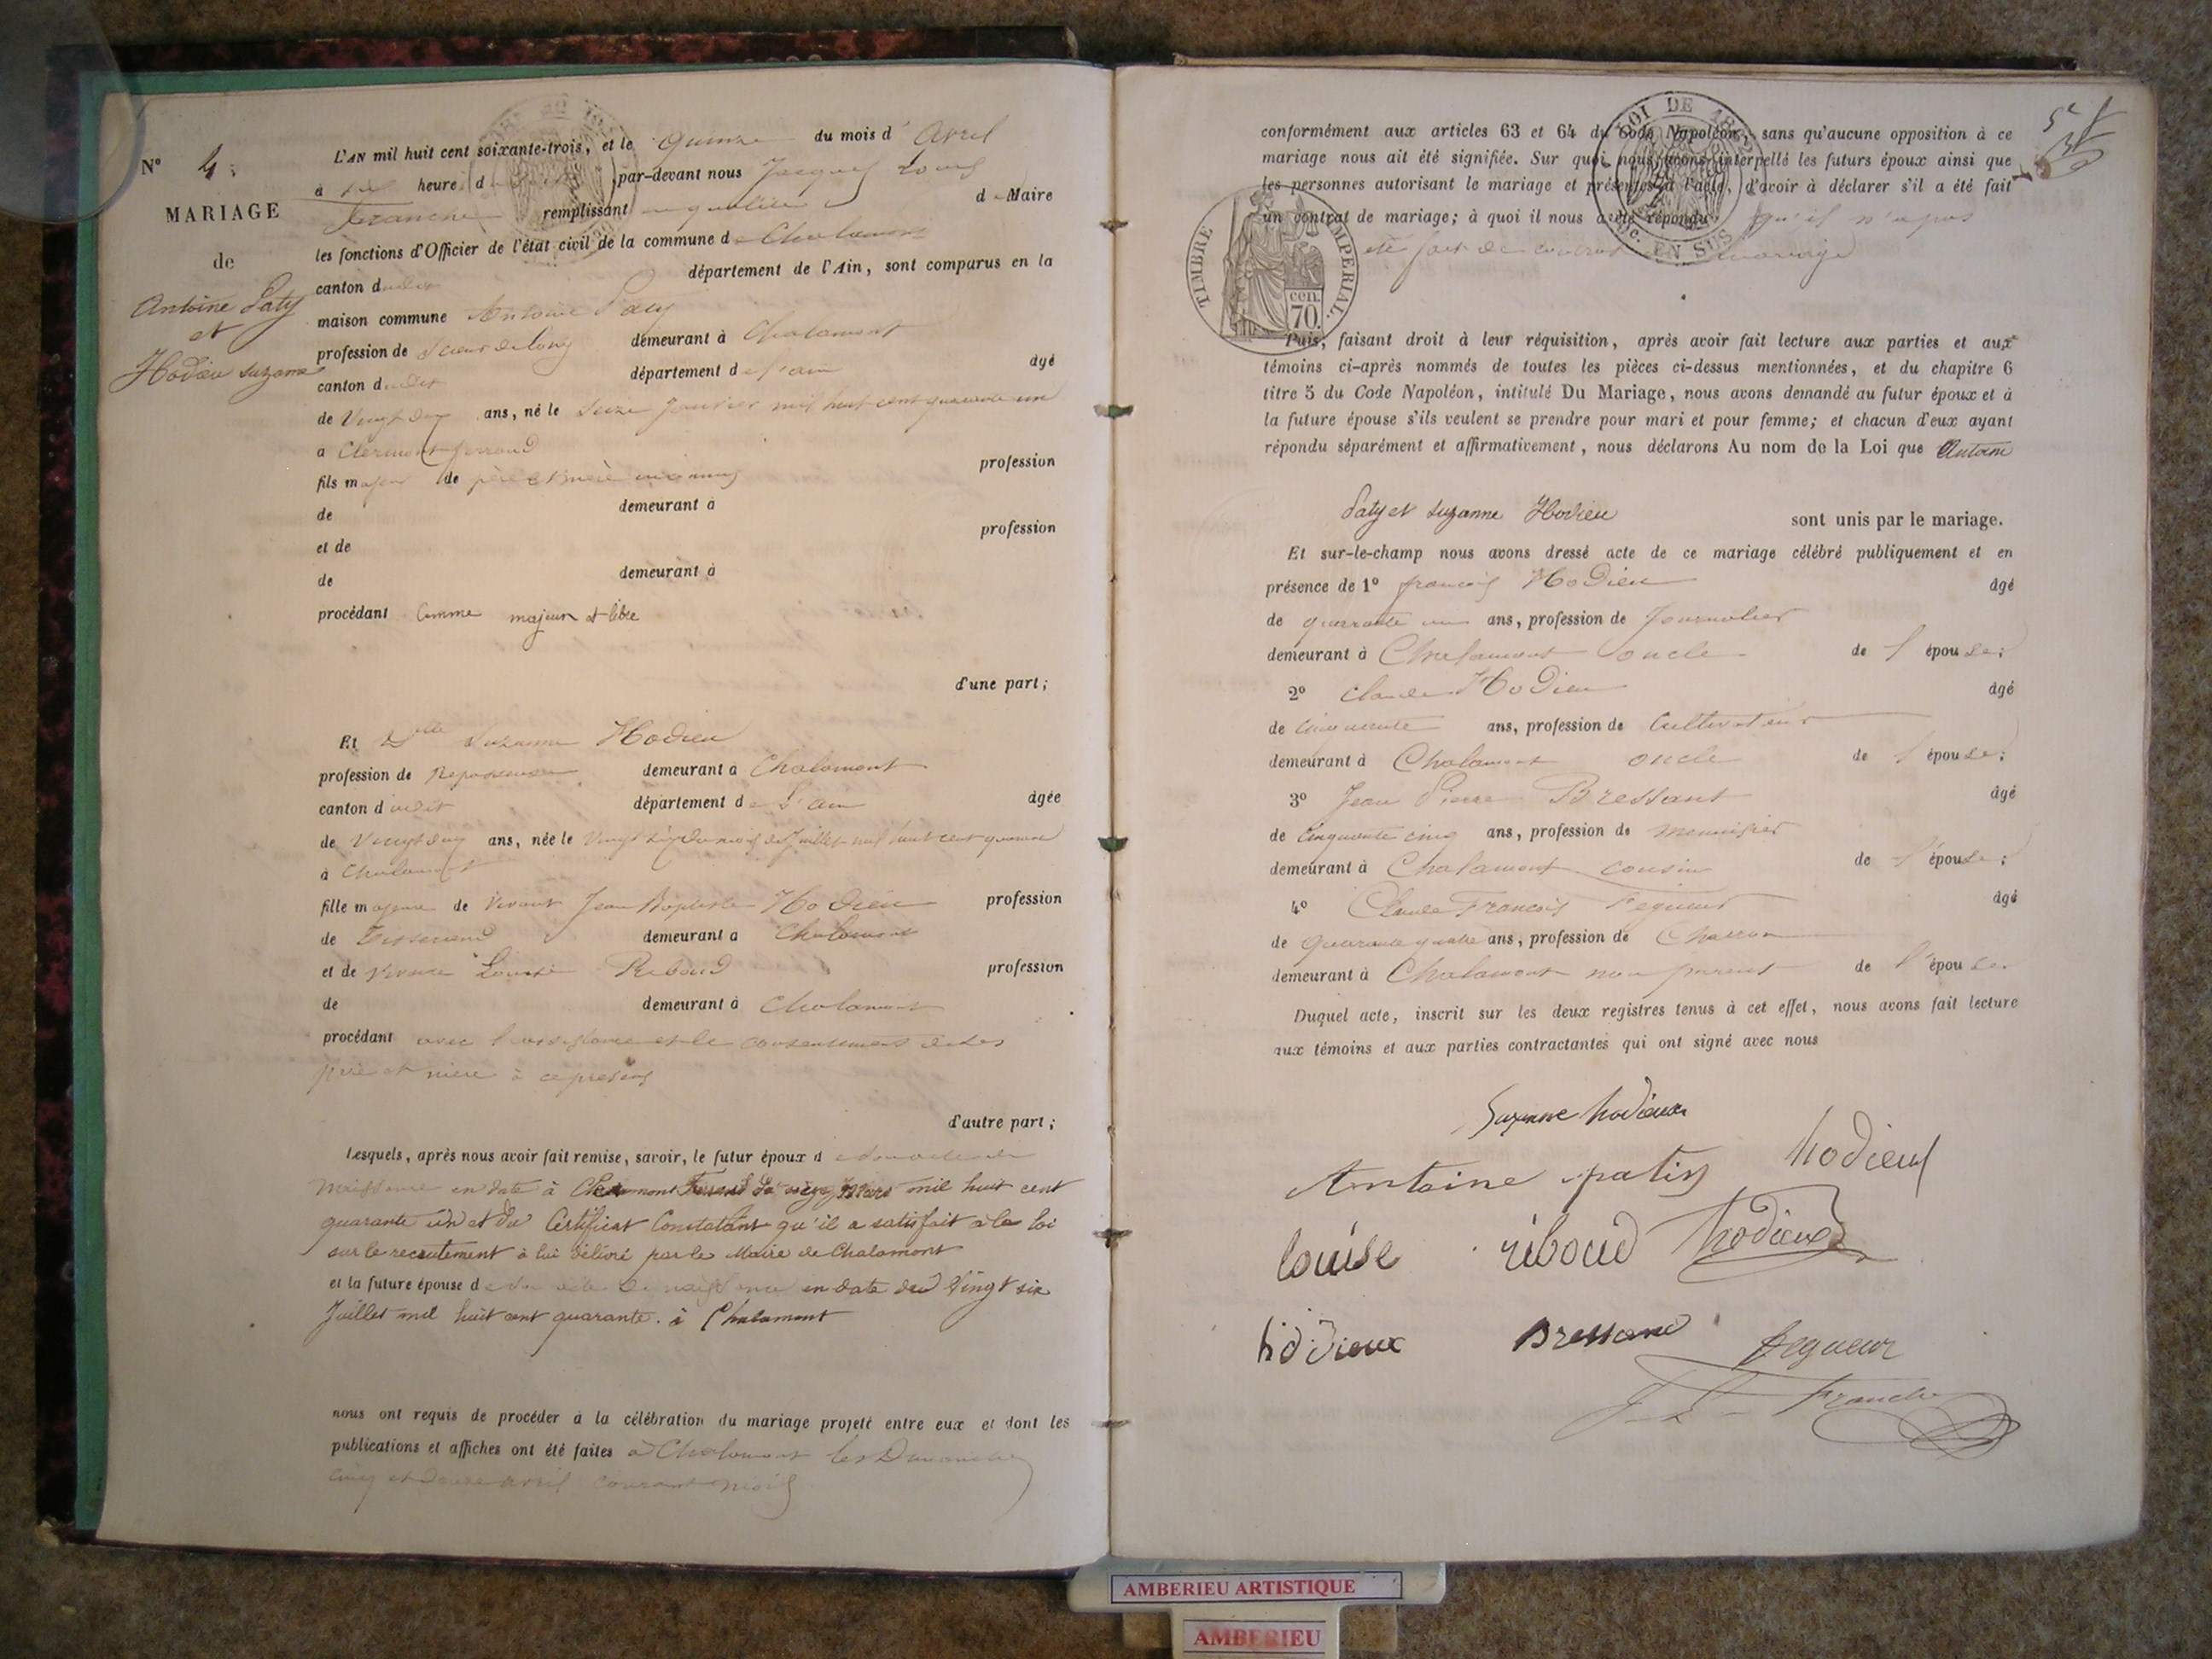 N° 4.
MARIAGE
de
Antoine Paty
et
Hodieu Suzanne
L'AN mil huit cent soixante-trois, et le quinze du mois d' Avril
à heure d par-devant nous Jacques Louis
Franche remplissant en qualité de Maire
les fonctions d'Officier de l'état civil de la commune de Chalamont
canton dudit département de l'Ain, sont comparus en la
maison commune Antoine Paty
profession de Scieur de long demeurant à Chalamont
canton dudit département de l'ain âgé
de Vingt deux ans, né le Seize Janvier mil huit cent quarante un
à Clermont ferrand
fils majeur de père et mère inconnus profession
de demeurant à
et de profession
de demeurant à
procédant Comme majeur et libre
d'une part;
Et Delle Suzanne Hodieu
profession de Repasseuse demeurant à Chalamont
canton dudit département de L'ain âgée
de Vingt deux ans, née le Vingt six du mois de Juillet mil huit cent quarante
à Chalamont
fille majeure de vivant Jean Baptiste Hodieu profession
de Tisserand demeurant à Chalamont
et de vivante Louise Riboud profession
de demeurant à Chalamont
procédant avec l'assistance et le consentement de ses
père et mère à ce présens
d'autre part;
Lesquels, après nous avoir fait remise, savoir, le futur époux de son acte de
Naissance en date à Clermont Ferrand mil huit cent
quarante un et du Certificat Constatant qu'il a satisfait à la loi
sur le recrutement à lui délivré par le Maire de Chalamont
et la future épouse de son acte de naissance en date du Vingt six
Juillet mil huit cent quarante. à Chalamont
nous ont requis de procéder à la célébration du mariage projeté entre eux et dont les
publications et affiches ont été faites à Chalamont les Dimanches
cinq et douze avril courant mois
5e
conformément aux articles 63 et 64 du Code Napoléon, sans qu'aucune opposition à ce
mariage nous ait été signifiée. Sur quoi nous avons interpellé les futurs époux ainsi que
les personnes autorisant le mariage et présentes à l'acte, d'avoir à déclarer s'il a été fait
un contrat de mariage; à quoi il nous a été répondu qu'il n'a pas
été fait de contrat de mariage
LOI DE 1862
EN SUS
TIMBRE IMPERIAL.
cen.
70.
Puis, faisant droit à leur réquisition, après avoir fait lecture aux parties et aux
témoins ci-après nommés de toutes les pièces ci-dessus mentionnées, et du chapitre 6
titre 5 du Code Napoléon, intitulé Du Mariage, nous avons demandé au futur époux et à
la future épouse s'ils veulent se prendre pour mari et pour femme; et chacun d'eux ayant
répondu séparément et affirmativement, nous déclarons Au nom de la Loi que Antoine
Paty et Suzanne Hodieu sont unis par le mariage.
Et sur-le-champ nous avons dressé acte de ce mariage célébré publiquement et en
présence de 1° françois Hodieu âgé
de quarante un ans, profession de Journalier
demeurant à Chalamont oncle de l'épouse;
2° Claude Hodieu âgé
de cinquante ans, profession de Cultivateur
demeurant à Chalamont oncle de l'épouse;
3° Jean Pierre Bressant âgé
de Cinquante cinq ans, profession de Menuisier
demeurant à Chalamont cousin de l'épouse;
4° Claude François Pegueur âgé
de Quarante quatre ans, profession de Charron
demeurant à Chalamont non parent de l'épouse.
Duquel acte, inscrit sur les deux registres tenus à cet effet, nous avons fait lecture
aux témoins et aux parties contractantes qui ont signé avec nous
Suzanne hodieux
Antoine patis hodieux
louise riboud hodieux
hodieux Bressand pegueur
J L Franche
AMBERIEU ARTISTIQUE
AMBERIEU